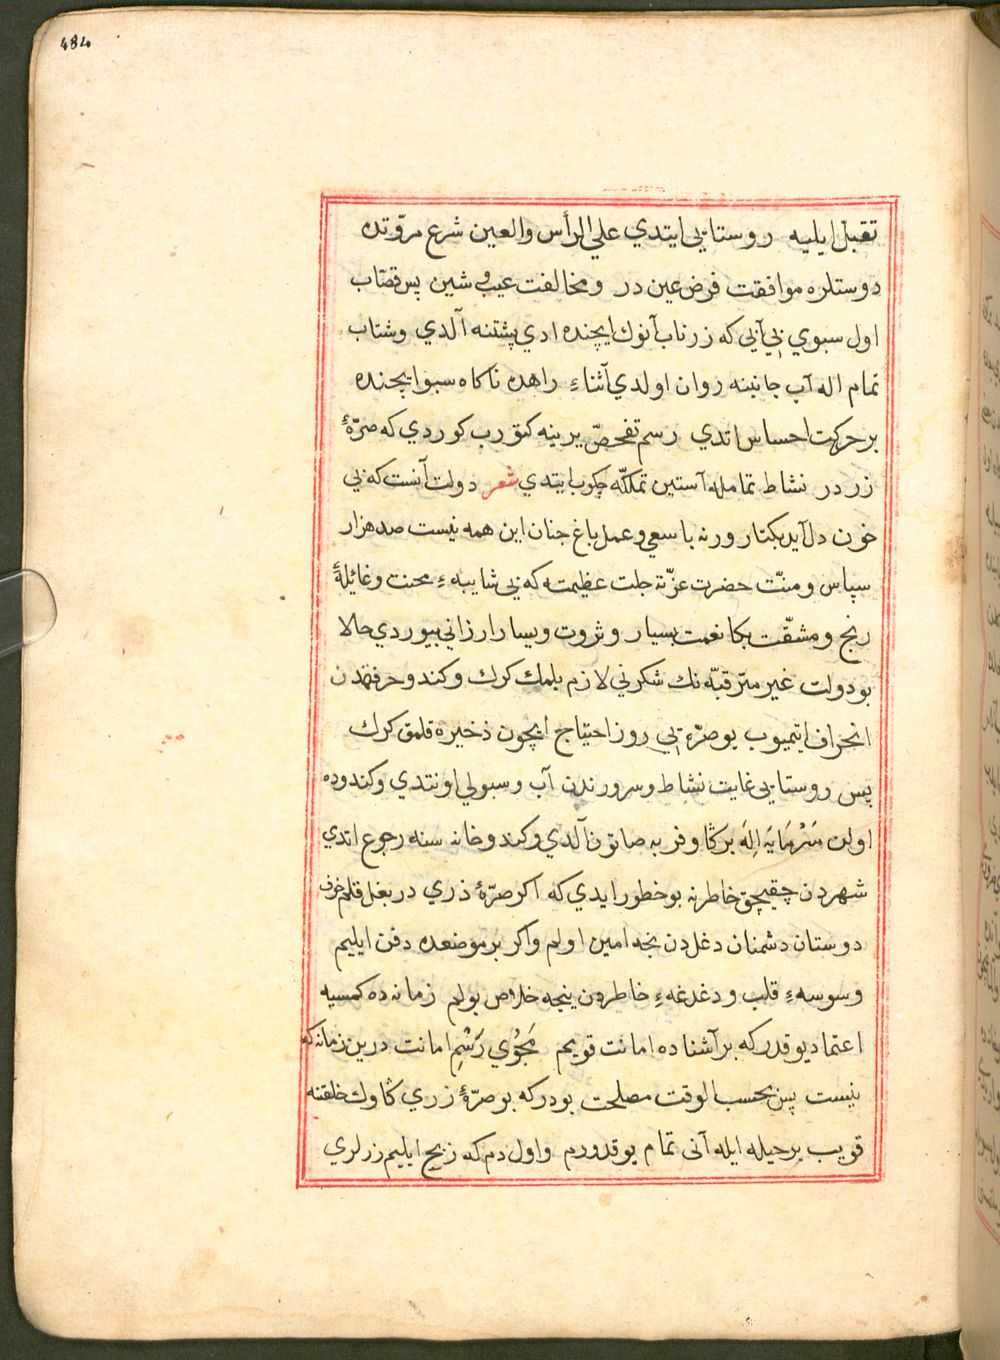 484
تقبل ايليه روستايي ايتدي علي الرأس والعين شرع مروّتده
دوستلره موافقت فرض عين در ومخالفت عيب و شين پس قصّاب
اول سبوي بي آبي كه زر ناب آنوك ايچنده ادي پشتنه آلدي وشتاب
تمام اله آب جانبنه روان اولدي آثناءِ راهده ناكاه سبو ايچنده
بر حركت احساس اتدي رسم تفحصّ يرينه كتورب كوردي كه صرّۀ
زر در نشاط تامله آستين تملكّه چكوب ايتدي شعر دولت آنست كه بي
خون دل آيد بكنار ورنه با سعي وعمل باغ جنان اين همه نيست صد هزار
سپاس ومنّت حضرت عزّته جلت عظيمته كه بي شايبهءِ محنت وغائيلۀ
رنج ومشقّت بكا نعمت بسيار وثروت ويسار ارزاني بيوردي حالا
بو دولت غير مترقبّه نك شكرني لازم بلمك كرك وكندو حرفتمدن
انحراف ايتميوب بو صرّه يي روز احتياج ايچون ذخيره قلمق كرك
پس روستايي غايت نشاط وسروردن آب وسبولي اونتدي وكندوده
اولن سَرْمَايَه اِلَه بر كاو فربه صاتون آلدي وكندو خانه سنه رجوع اتدي
شهردن چقيجق خاطرنه بو خطور ايدي كه اكر صرّۀ ذري در بغل قلم خرف
دوستان دشمنان دغلدن نجه امين اولم واكر بر موضعده دفن ايليم
وسوسهءِ قلب ودغدغهءِ خاطردن ينجه خلاص بولم زمانه ده كمسيه
اعتماد يوقدر كه بر آشناده امانت قويم مَجُوُي رَسْمِ امانت درين زمانه كه
نيست پس بحسب الوقت مصلحت بودر كه بو صرّۀ زري كاوك خلقنه
قويب بر حيله ايله آنى تمام يوقدورم واول دم كه زبح ايليم زرلري